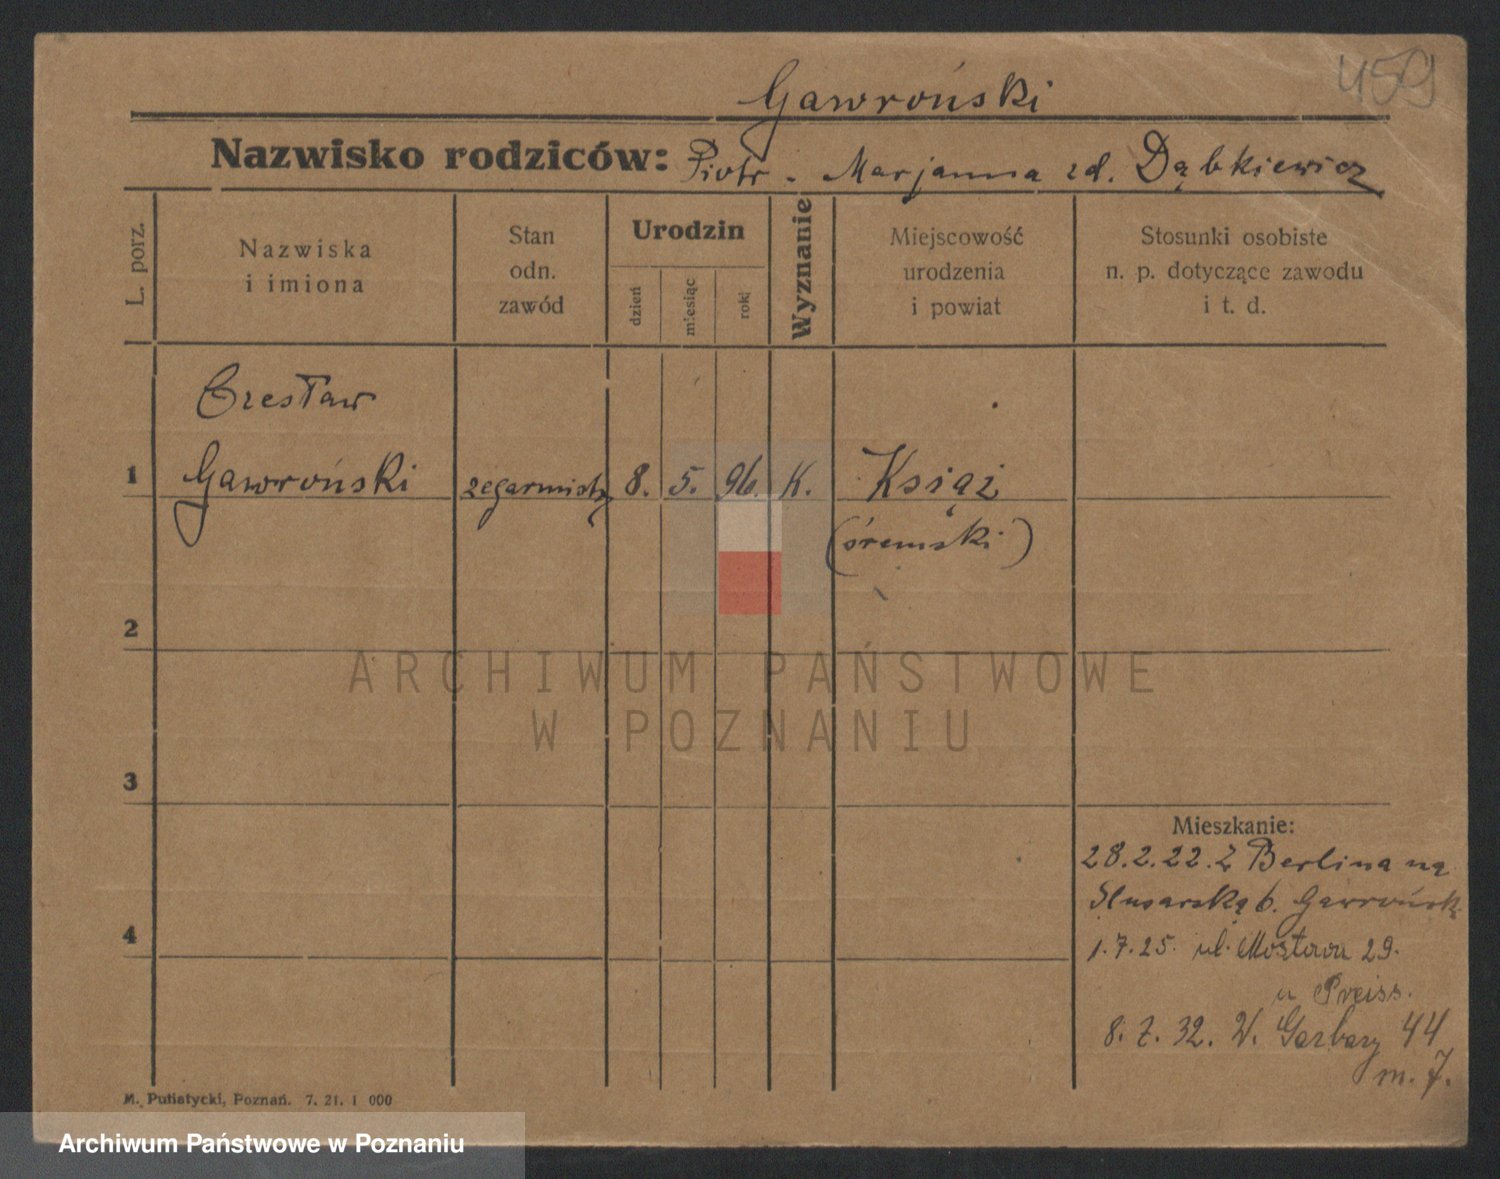 459
Gawroński
Nazwisko rodziców: Piotr - Marjanna zd. Dąbkiewicz
L. porz.
Nazwiska
i imiona
Stan
odn.
zawód
Urodzin
dzień
miesiąc
rok
Wyznanie
Miejscowość
urodzenia
i powiat
Stosunki osobiste
n. p. dotyczące zawodu
i t. d.
Czesław
1 Gawroński zegarmistrz 8. 5. 96. K. Książ
(śremski)
2
ARCHIWUM PAŃSTWOWE
W POZNANIU
3
Mieszkanie:
28.2.22. Z Berlina na
Ślusarską 6. Gawrońsk
4
1.7.25. ul. Mostowa 29.
u Preiss.
8. 7. 32. W. Garbary 44
m. 7.
M. Putiatycki, Poznań. 7. 21. 1 000
Archiwum Państwowe w Poznaniu